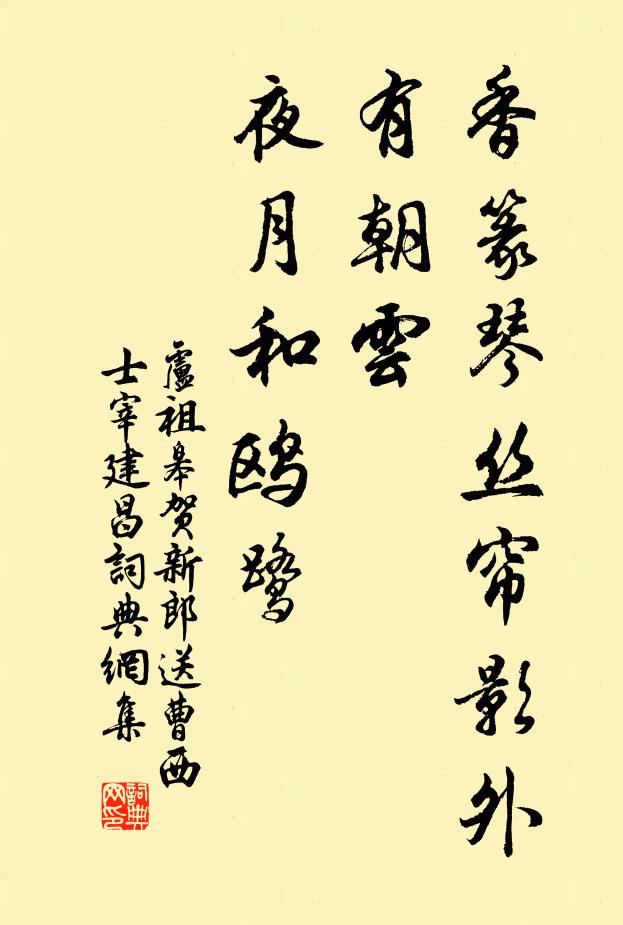 香篆琴丝帘影外
有朝雲
夜月和鸥鹭
盧祖皋贺新郎送曹西
士宰建昌詞典網集
詞典
网印